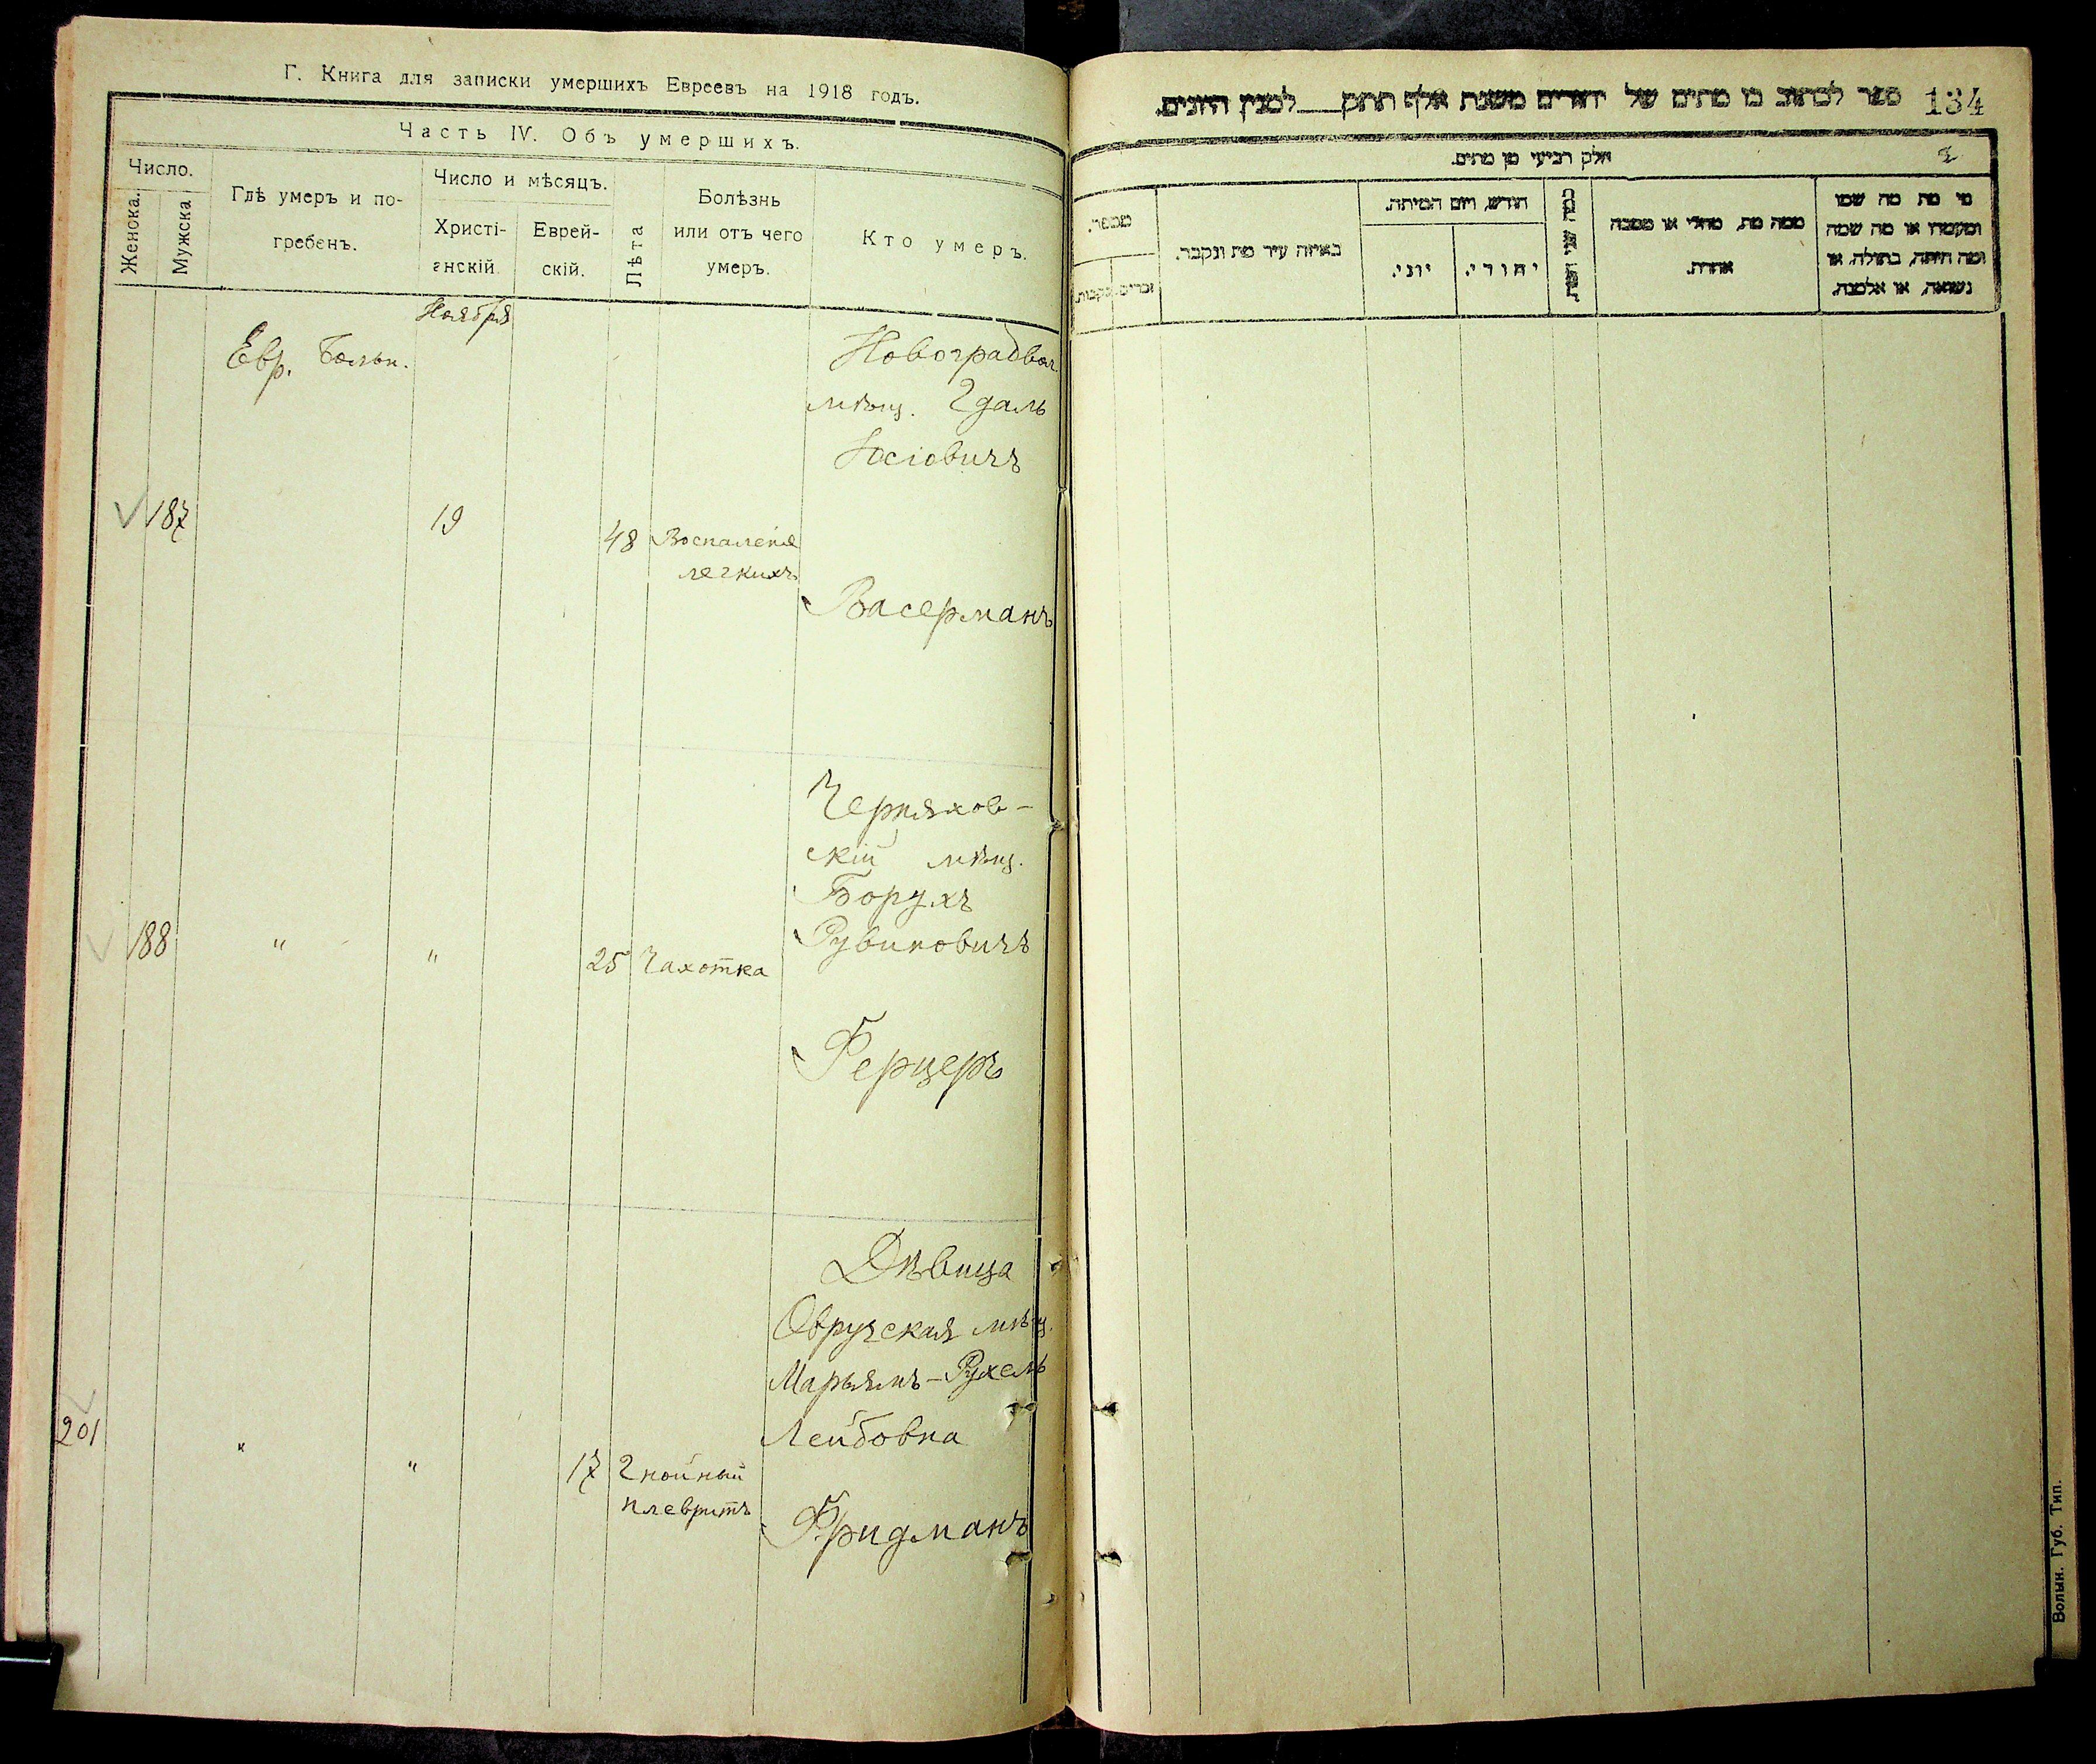 Г. Книга для записки умершихъ Евреевъ на 1918 годъ.
Часть IV. Объ умершихъ.
Число.
Женска.
Мужска
Гдѣ умеръ и по-
гребенъ.
Число и мѣсяцъ.
Христі-
анскій
Еврей-
скій.
Лѣта
Болѣзнь
или отъ чего
умеръ.
Кто умеръ.
Ноября
Евр. Больн.
187
19
48
Воспаленіе
легкихъ
Новоградвол.
мѣщ. Гдаль
Іосіовичъ
Васерманъ
188
"
"
25
Чахотка
Черняхов-
скій мѣщ.
Борухъ
Рувиновичъ
Ферцеръ
201
"
"
17
Гнойный
плевритъ
Дѣвица
Овручская мѣщ.
Марьямъ-Рухель
Лейбовна
Фридманъ
ספר לכתוב בו מתים של יהודים משנת אלף תתק למנין היונים.
134
חלק רביעי מן מתים.
2
מספר.
זכרים
נקבות
באיזה עיר מת ונקבר.
חודש, ויום המיתה.
יוני.
יהודי.
ממה מת, מחלי או מסבה
אחרת.
מי מת מה שמו
ומעמדו או מה שמה
ומה היתה, בתולה, או
נשואה, או אלמנה.
Волын. Губ. Тип.